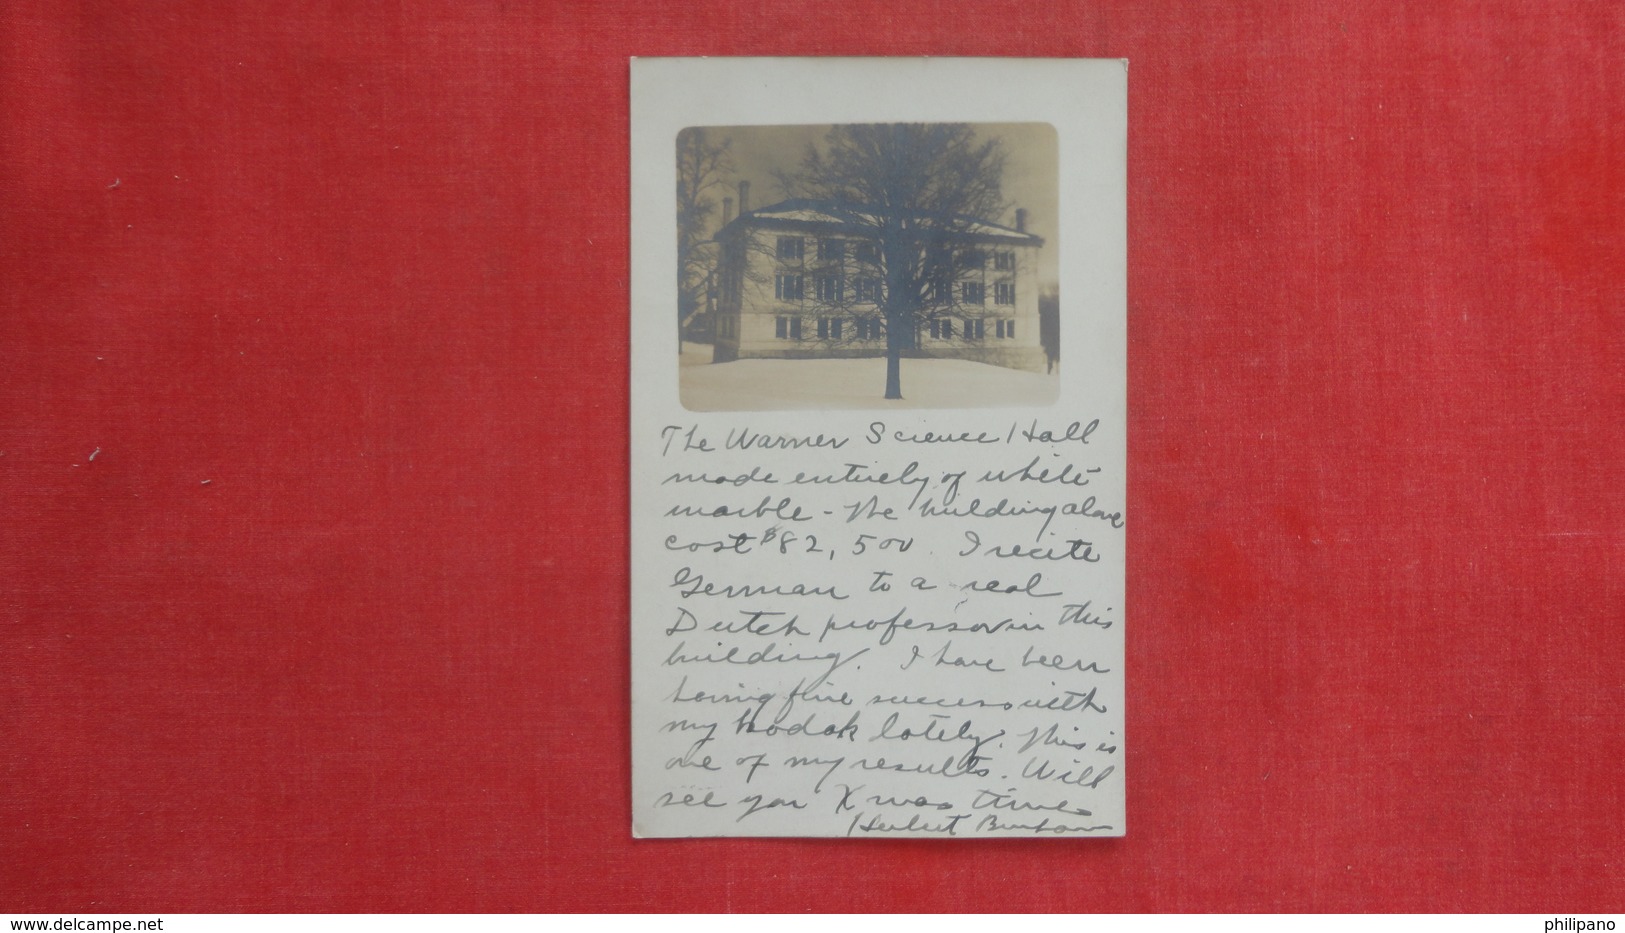 The Warner Science Hall
made entirely of white
marble - The building alone
cost $82,500. I recite
German to a real
Dutch professor in this
building. I have been
having fine success with
my kodak lately. This is
one of my results. Will
see you Xmas time
Herbert
delcampe.net
philipano